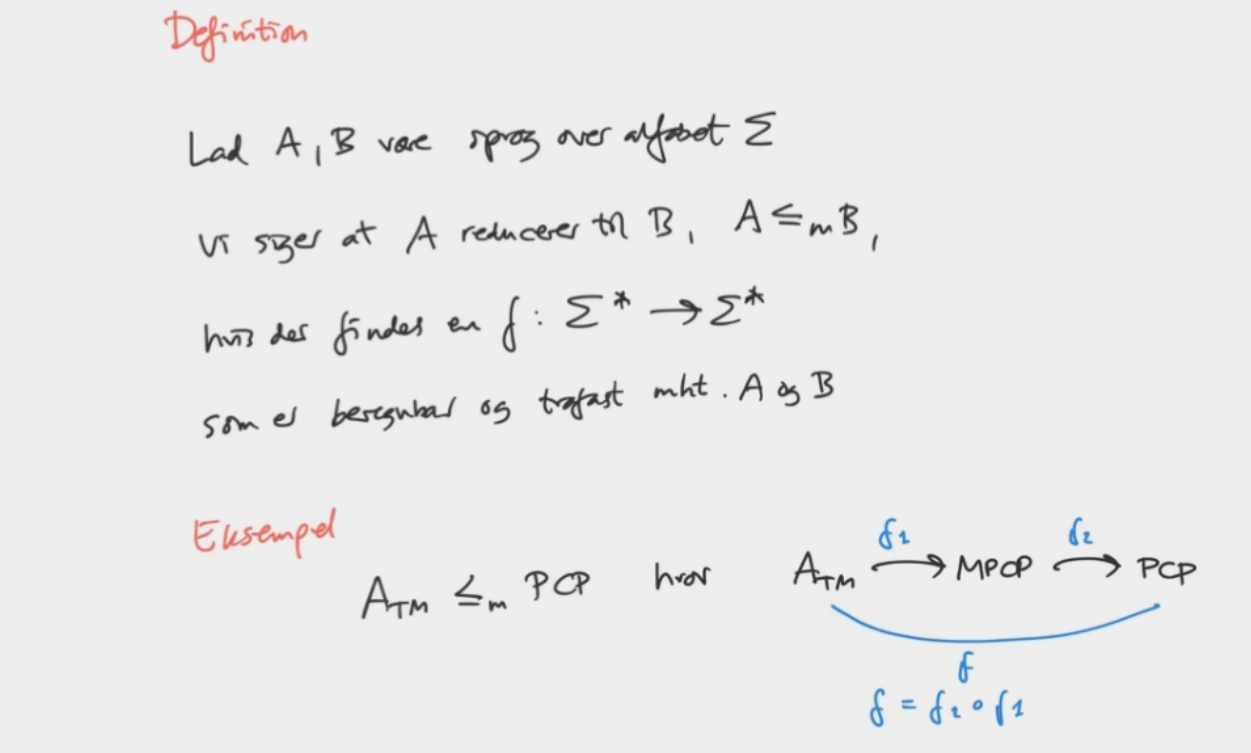 Definition
Lad A, B være sprog over alfabet Σ
Vi siger at A reducerer til B, A ≤m B,
hvis der findes en f: Σ* → Σ*
som er beregnbar og trofast mht. A og B
Eksempel
ATM ≤m PCP hvor ATM → MPCP → PCP
f1 f2
f
f = f2 ∘ f1